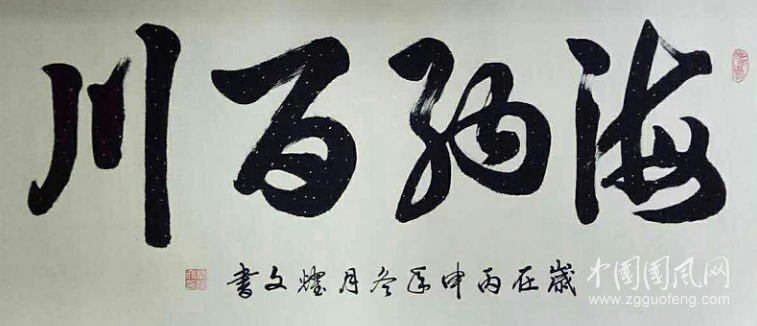 海納百川
歲在丙申年冬月燿文書
中國國風网
www.zgguofeng.com